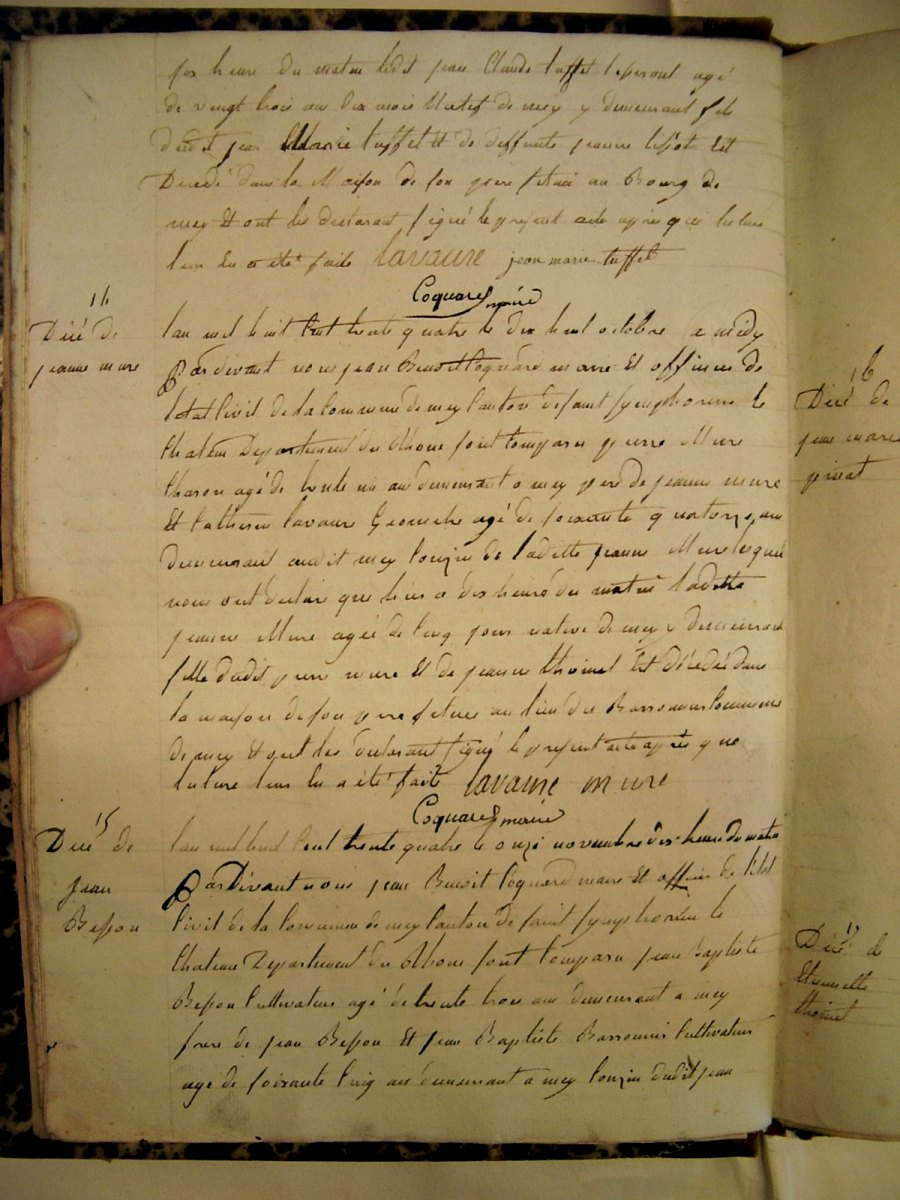 six heure du matin ledit jean Claude tuffet tisserant agé
de vingt trois ans dix mois et natif de mey y demeurant fils
dudit jean Marie tuffet et de deffunte jeanne tissot est
Decedé dans la Maison de son pere situéé au Bourg de
mey Et ont les declarant signé le present acte apres que lecture
leur En a été faite lavaure jean marie tuffet
Coquard maire
14
Décé de
jeanne mure
lan mil huit Cent trente quatre le dix huit octobre a midy
Pardivant nous jean Benoit Coquard maire Et officier de
letat Civil de la Commune de mey Canton de saint symphorien le
Chateau Departement du Rhone sont Comparu pierre Mure
Charon agé de trente un ans demeurant a mey pere de jeanne mure
Et Catherin lavaure Geometre agé de soixante quatorze ans
demeurant audit mey Couzin de ladette jeanne Mure lesquel
nous ont declaré que hier a dix heure du matin ladette
jeanne Mure agéé de Cinq jours native de mey y demeurant
fille dudit pierre mure Et de jeanne thoinet Est décédéé dans
la maison de son pere situéé au lieu de Barronnier Commune
de mey Et ont les declarant signé le present acte apres que
lecture leur En a été fait lavaure mure
Coquard maire
15
Décé de
jean
Besson
lan mil huit Cent trente quatre le onze novembre dix heure du matin
Pardivant nous jean Benoit Coquard maire Et officier de letat
Civil de la Commune de mey Canton de saint symphorien le
Chateau Departement du Rhone sont Comparu jean Baptiste
Besson Cultivateur agé de trente trois ans demeurant a mey
frere de jean Besson Et jean Baptiste Barronnier Cultivateur
agé de soixante Cinq ans demeurant a mey Couzin dudit jean
16
Décé de
jean marie
pinat
17
Décé de
thoinet